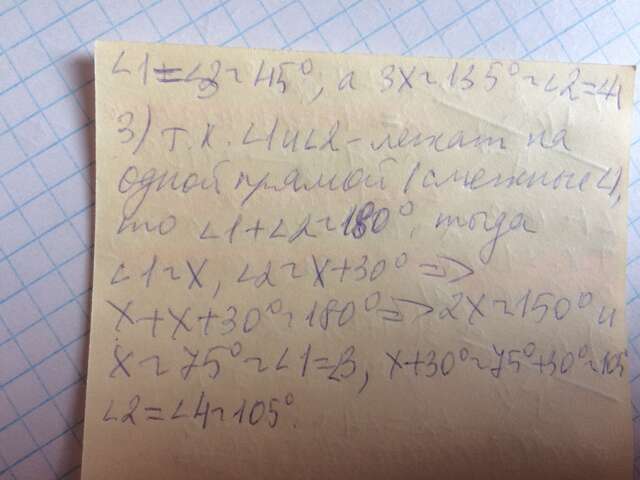 ∠1=∠3=45°, а 3x=135°=∠2=∠4
3) т.к. ∠1 и ∠2 - лежат на
одной прямой (смежные ∠),
то ∠1+∠2=180°, тогда
∠1=x, ∠2=x+30° =>
x+x+30°=180° => 2x=150° и
x=75°=∠1=∠3, x+30°=75°+30°=105°
∠2=∠4=105°.